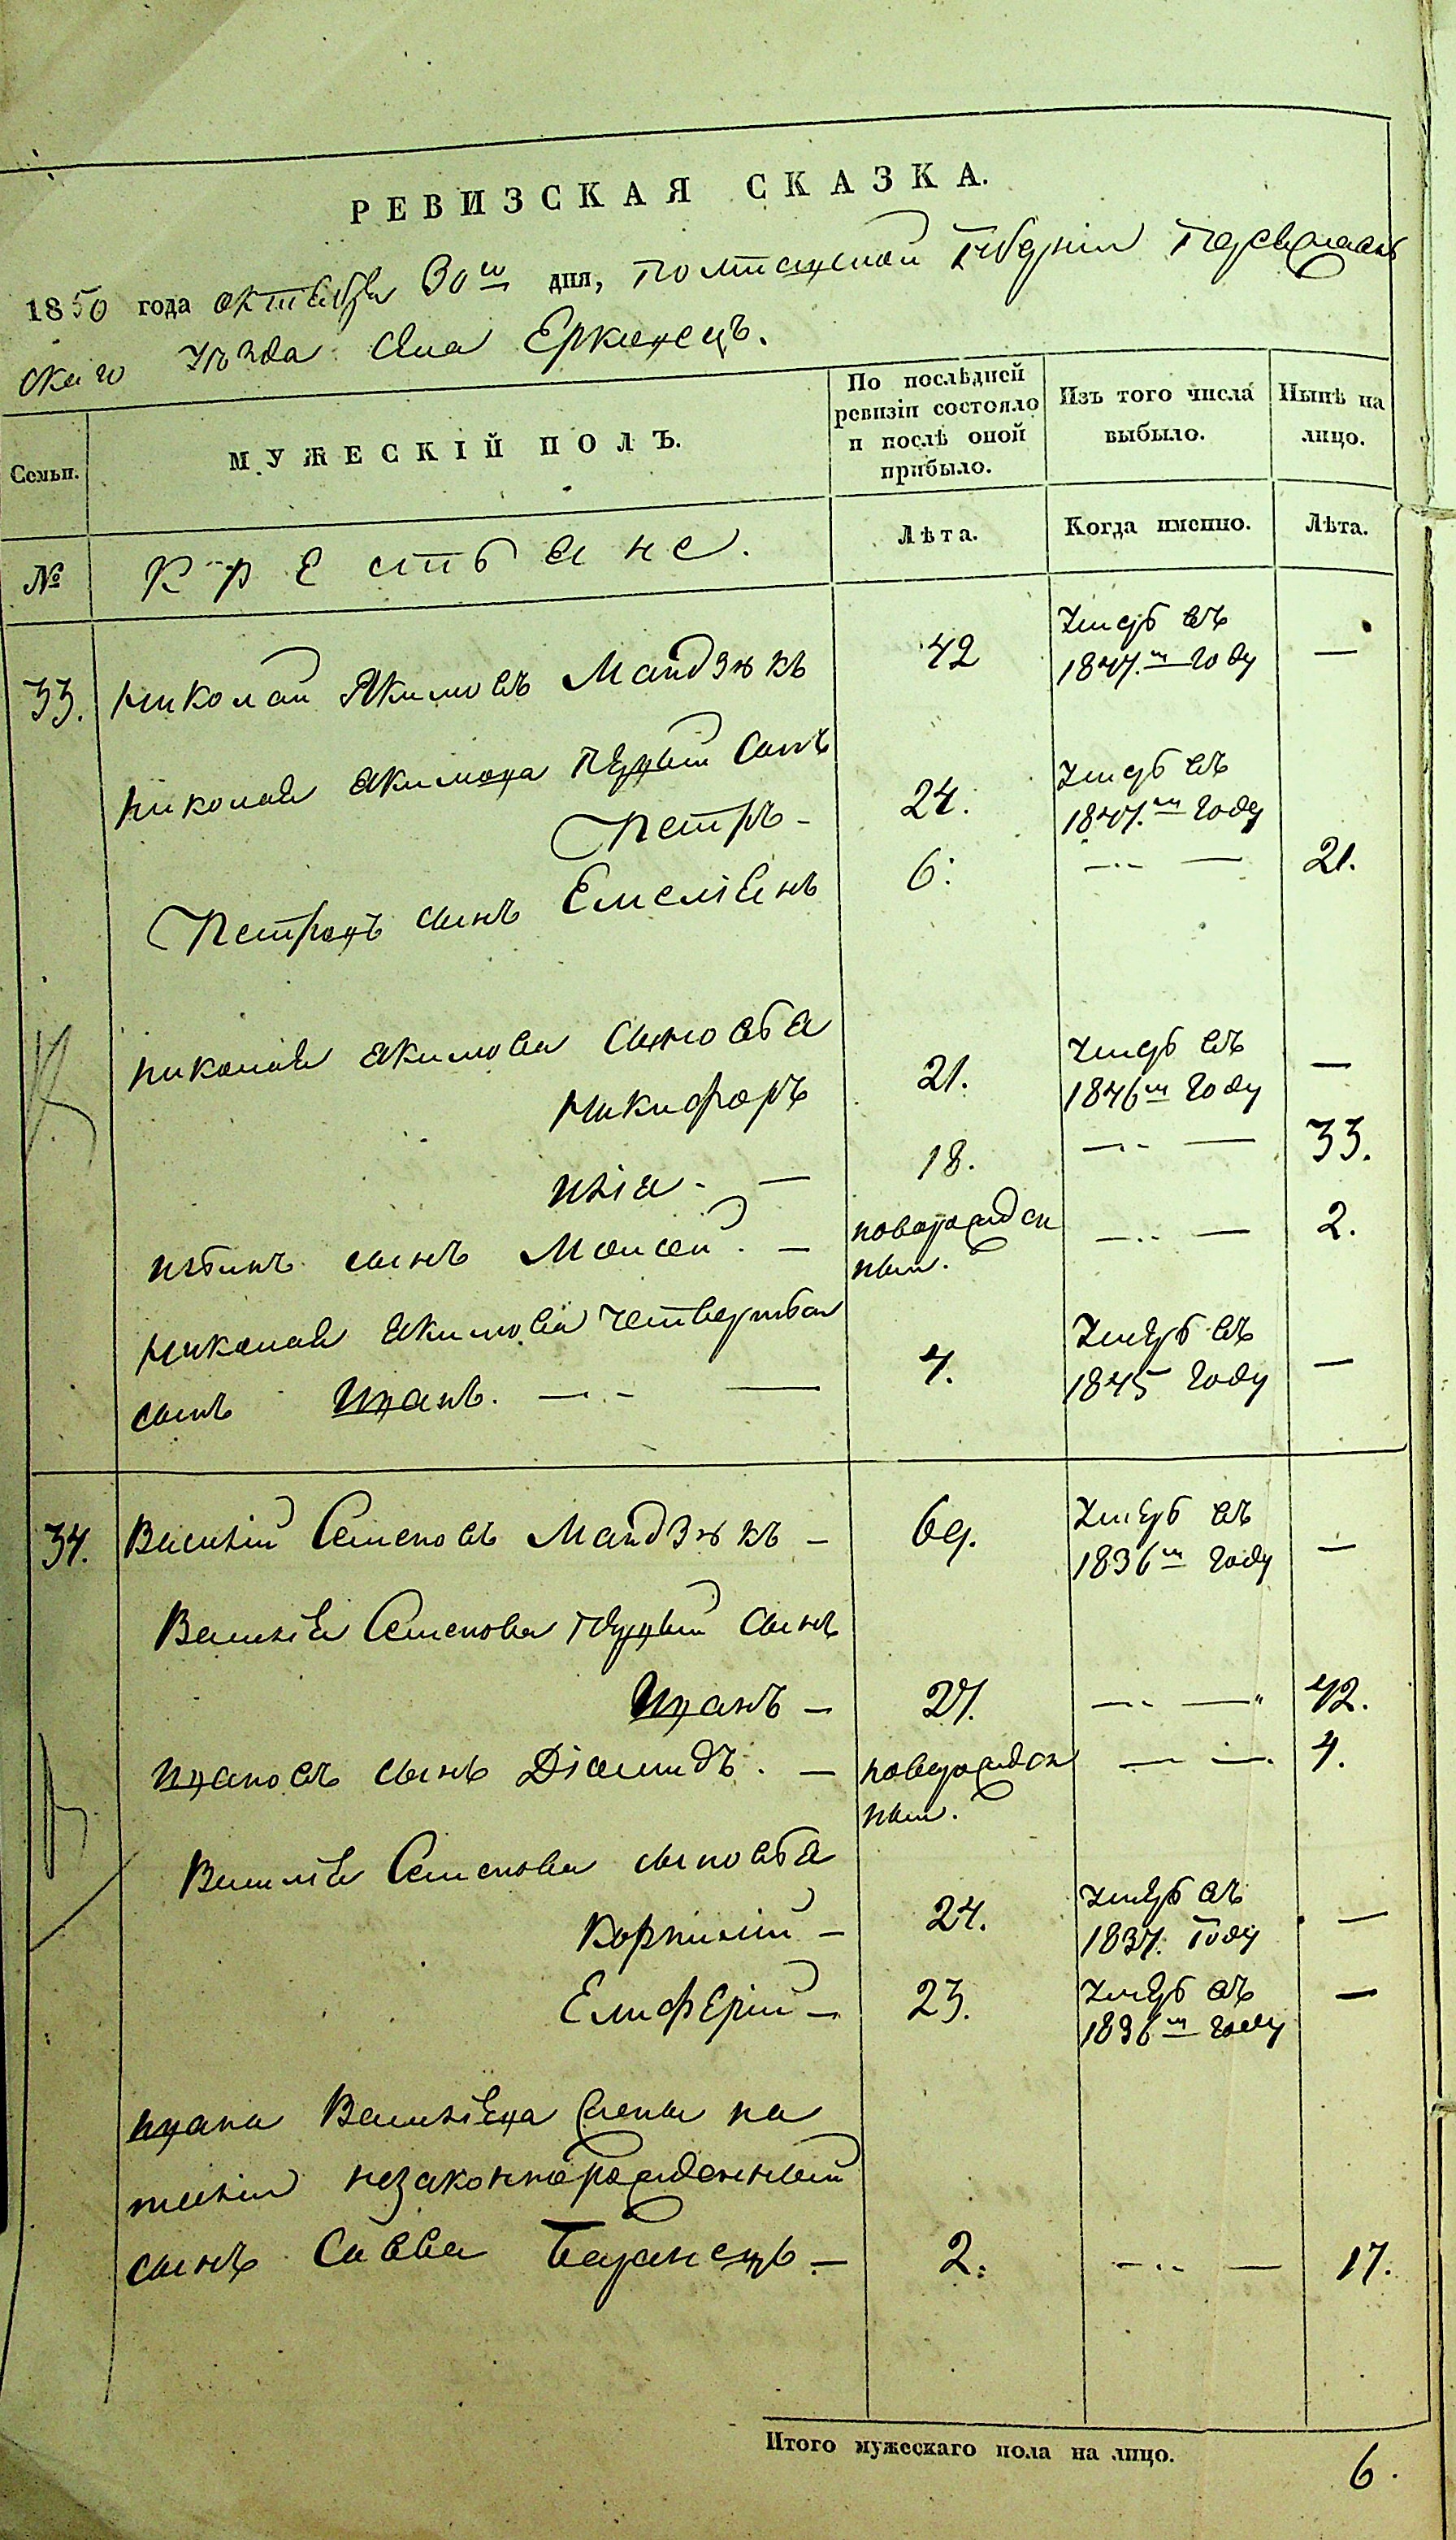 РЕВИЗСКАЯ СКАЗКА.
1850 года октября 30го дня, Полтавской Губерніи Переяслав
скаго уѣзда села Еркавець.
Семьи.
МУЖЕСКІЙ ПОЛЪ.
По послѣдней ревизіи состояло и послѣ оной прибыло.
Изъ того числа выбыло.
Нынѣ на лицо.
№
Крестьяне.
Лѣта.
Когда именно.
Лѣта.
33. Николай Якимовъ 42 умеръ въ 1847.м году —
Николая Якимова первый сынъ
Петръ - 24. умеръ въ 1847.м году
Петровъ сынъ Емеліянъ 6. — 21.
Николая Якимова сыновья
Никифоръ 21. умеръ въ 1846м году —
Илія - — 18. — 33.
Ильинъ сынъ Моисей. — новорожден
ный. — 2.
Николая Якимова четвертый
сынъ Иванъ. — 4. умеръ въ 1845 году —
34. Василій Семеновъ — 69. умеръ въ 1836м году —
Василія Семенова первый сынъ
Иванъ — 27. — 42.
Ивановъ сынъ Діомидъ. — новорожден
ный. — 4.
Василія Семенова сыновья
Корнилій — 24. умеръ въ 1837. году —
Елиферій — 23. умеръ въ 1836м году —
Ивана Васильева жены На
таліи незаконнорожденный
сынъ Савва — 2. — 17.
Итого мужескаго пола на лицо. 6.